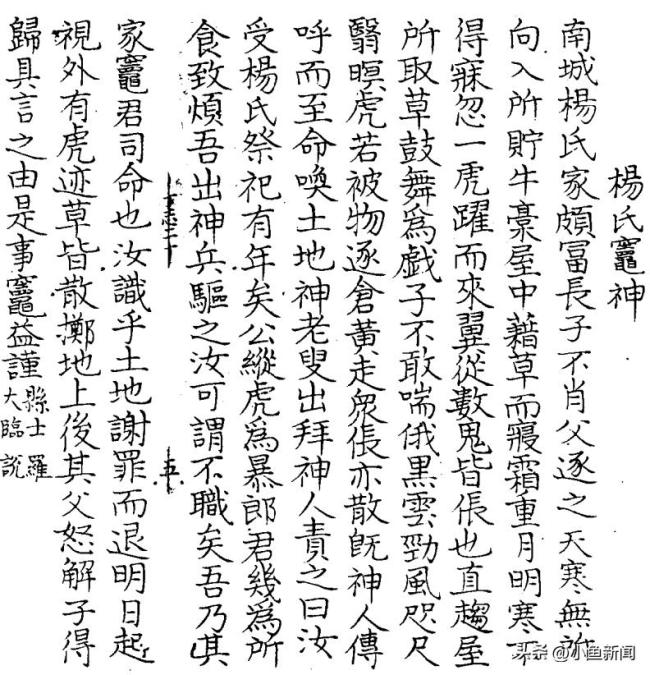 楊氏竈神
南城楊氏家頗冨長子不肖父逐之天寒無所
向入所貯牛藁屋中藉草而寢霜重月明寒不
得寐忽一虎躍而來翼從數鬼皆倀也直趨屋
所取草鼓舞爲戲子不敢喘俄黑雲勁風咫尺
翳暝虎若被物逐倉黃走衆倀亦散旣神人傳
呼而至命喚土地神老叟出拜神人責之曰汝
受楊氏祭祀有年矣公縱虎爲暴郎君幾爲所
食致煩吾出神兵驅之汝可謂不職矣吾乃其
家竈君司命也汝識乎土地謝罪而退明日起
視外有虎迹草皆散擲地上後其父怒解子得
歸具言之由是事竈益謹
縣士羅
大臨說
头条 @小鱼新闻